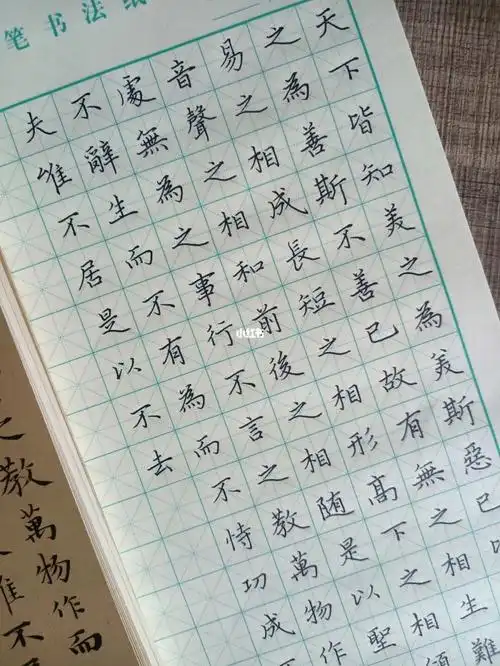 笔书法纸
天下皆知美之為美斯惡已
之為善斯不善已故有無之相生難
易之相成長短之相形高下之相傾
音聲之相和前後之相随是以聖
處無為之事行不言之教萬物作
不辭生而不有為而不恃功成
夫唯不居是以不去
之教萬物作而
唯不
小红书